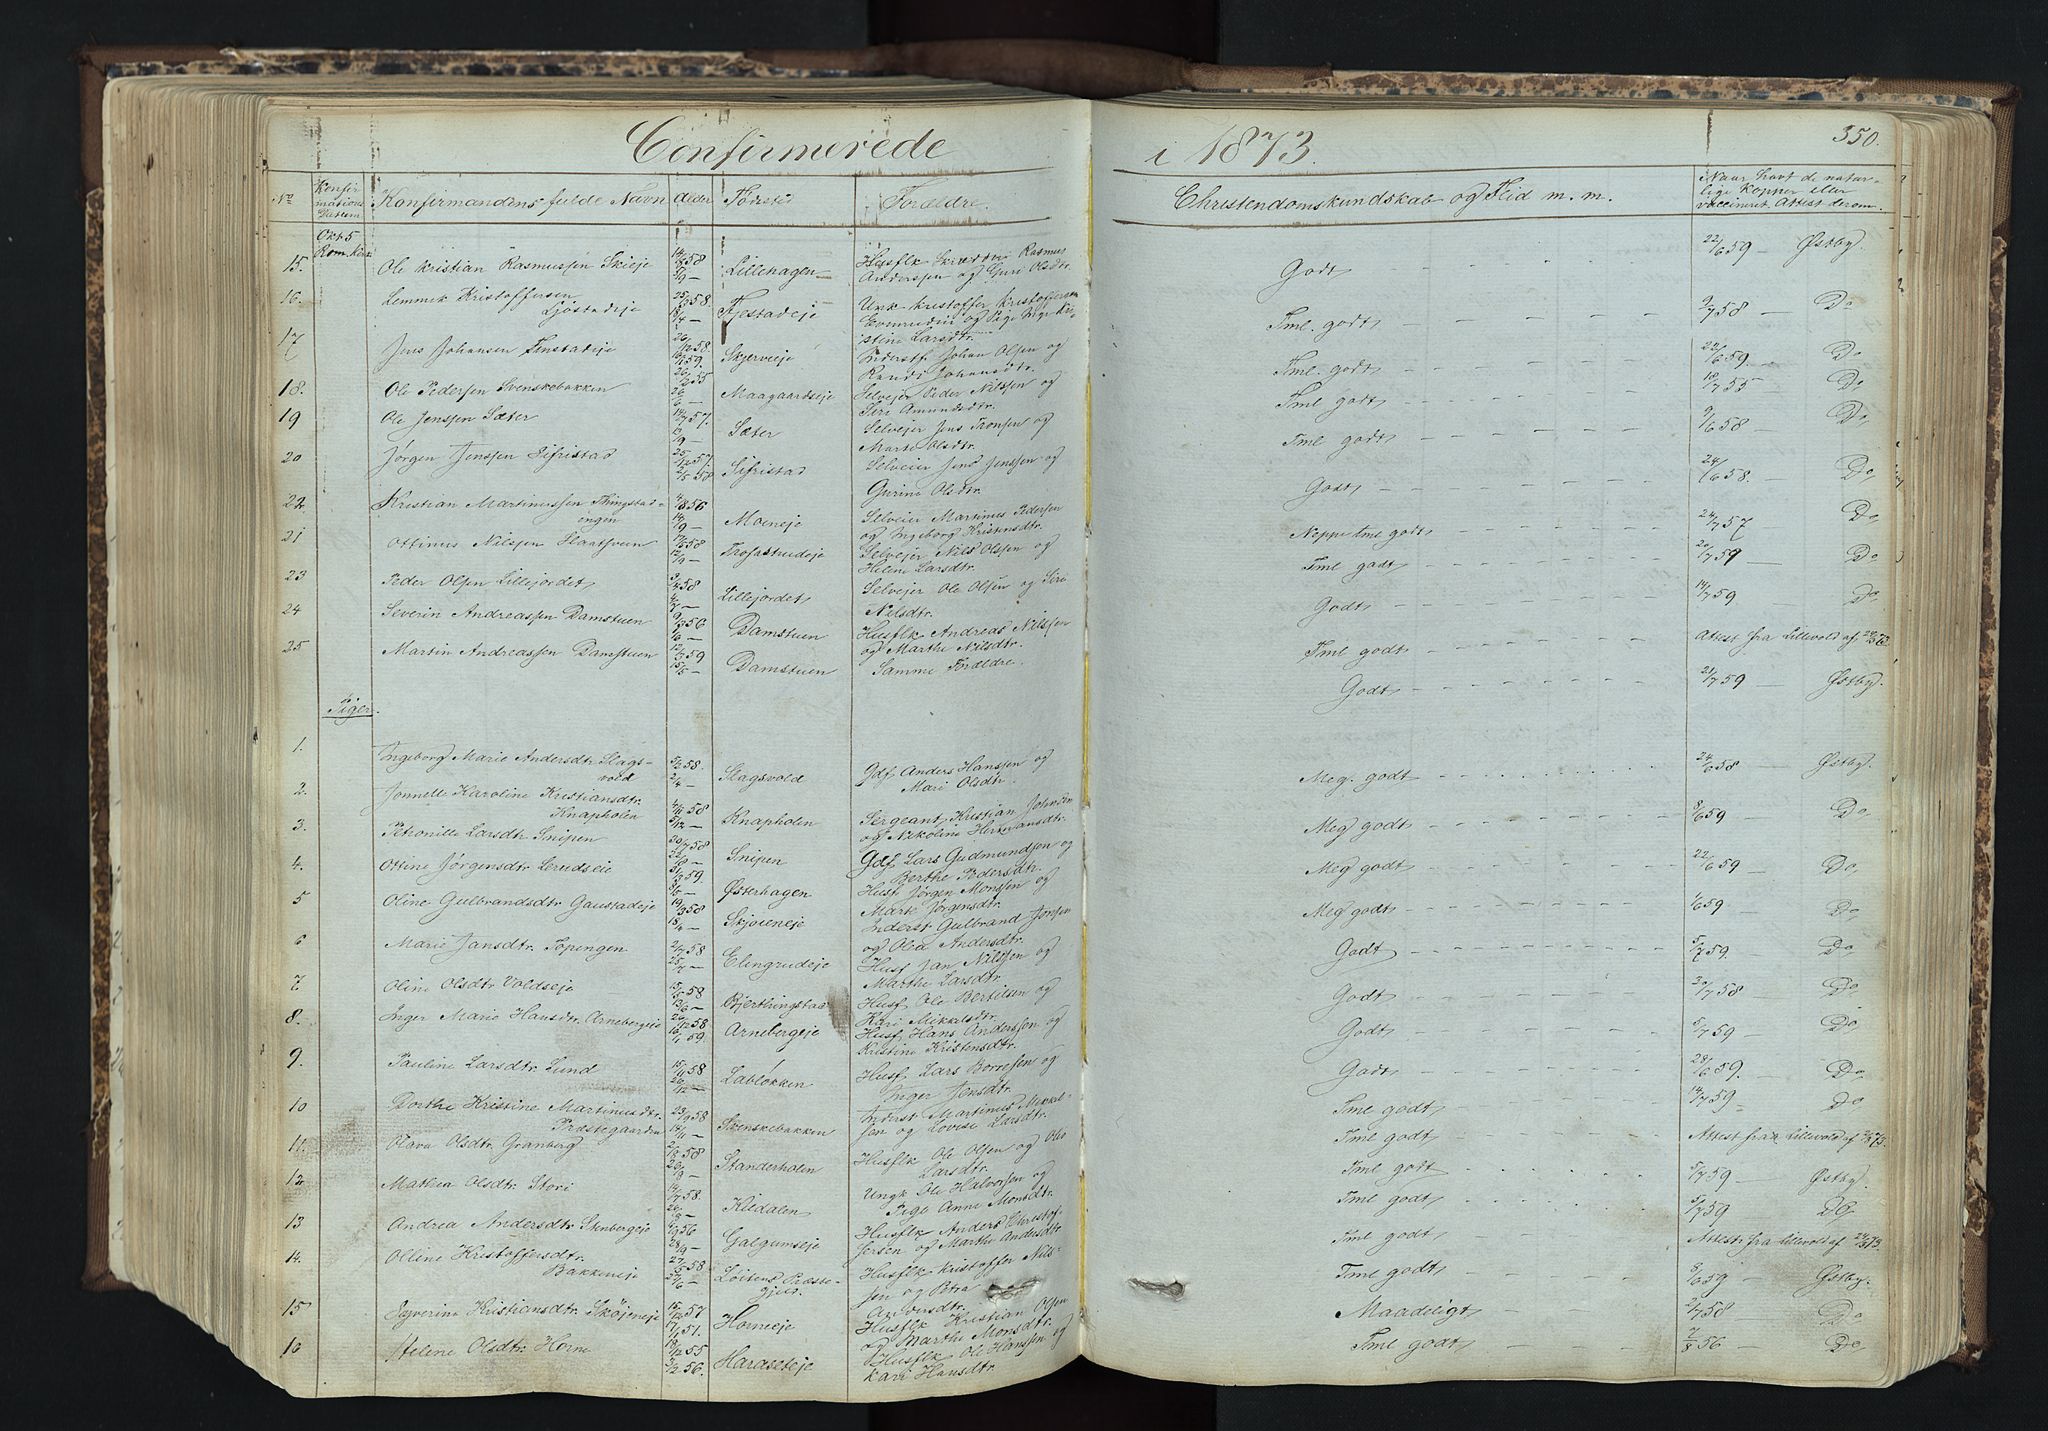 Confirmerede i 1873. 350.
No Konfirmations Datum Konfirmandens fulde Navn Alder Fødested Forældre. Christendomskundskab og Flid m. m. Naar havt de naturlige Kopper eller vaccineret, Attest derom.
Okt 5
Rom. Kirke
15. Ole Kristian Rasmussen Skieje 58 Lillehagen Husflk Skrædder Rasmus Anderssen og Guri Olsdtr. Godt 22/6 59 Østby.
16. Lemmik Kristoffersen Fjøstadeje 58. Fjestadeje Unk Kristoffer Kristoffersen og Pige Inge Kristine Larsdtr. Tml. godt 9/7 58 Do
17 Jens Johansen Finstadeje 58 59. Skjerveje Inderst. Johan Olsen og Randi Johansdtr. Tml. godt 22/6 59. Do
18. Ole Pedersen Svenskebakken 26/2 55 26/6 — Maagaardseje Selvejer Peder Nilssen og Siri Amundsdtr. Tml godt 18/7 55 Do
19 Ole Jenssen Sæter 57. Sæter Selvejer Jens Tronsen og Marte Olsdtr. Tml godt 9/6 58 Do
20 Jørgen Jenssen Sifristad 25/12 57. 2/5 58 Sifristad Selveier Jens Jenssen og Gurine Olsdtr. Godt 24/6 58. Do
22 Kristian Martinussen Thingstadengen 56 14/9 — Moeneje Selveier Martinus Pedersen og Ingeborg Kristensdtr. Neppe tml godt 24/7 57 Do
21 Ottinus Nilssen Slaatsveen 58 12/9 — Trosastrudeje Selvejer Nils Olssen og Helene Larsdtr. Tml godt 20/7 59 Do
23 Peder Olsen Lillejordet 58 Lillejordet Selvejer Ole Olsen og Siri Nilsdtr. Godt 14/7 59 Do
24 Severin Andreassen Damstuen 56 Damstuen Husflk Andreas Nilssen og Marthe Nilsdtr. Tml godt Attest fra Lillevold af 24/5 73.
25 Martin Andreassen Damstuen 12/3 59 15/5 — Damstuen Samme Forældre. Godt 21/7 59 Østby.
Piger.
1. Ingeborg Marie Andersdtr Slagsvold 3/2 58. 2/4 — Slagsvold Gdf. Anders Hanssen og Mari Olsdtr. Meg. godt 24/6 58 Østby.
2. Jonnette Karoline Kristiansdtr. Knapholen 58 5/12 — Knapholen Sergeant Kristian Johnsen og Nikoline Hermansdtr. Meg godt 8/6 59 Do
3. Petronille Larsdtr Snipen 20/7 58 22/8 — Snipen Gdf Lars Gudmundsen og Berthe Pedersdtr. Meg godt 22/6 59 Do
4. Ottine Jørgensdtr. Lerudseje 59. Østerhagen Husf Jørgen Monssen og Marte Jørgensdtr. Meg godt 1/6 59 Do
5 Oline Gulbrandsdtr Gaustadeje 19/3 58 18/4 — Skjøreneje Inderst Gulbrand Jonsen og Olea Andersdtr. Godt 5/7 59. Do
6 Marie Jansdtr. Topengen 2/7 58 25/7 — Elingrudeje Husf Jan Nilssen og Marthe Larsdtr. Godt 20/7 58 Do
7 Oline Olsdtr Voldseje 15/5 58 13/6 — Bjerthingstad Husf. Ole Bertilsen og Kari Mikkelsdtr. Godt 5/7 59 Do
8. Inger Marie Hansdtr. Arnebergeje 26/12 58 16/1 59. Arnebergeje Husf. Hans Anderssen og Kristine Kristensdtr. Godt 28/6 59. Do
9. Pauline Larsdtr Lund 15/11 58 26/12 — Labløkken Husf. Lars Borresen og Inger Jensdtr. Tml godt 14/7 59 Do
10 Dorthe Kristine Martinusdtr. Præstegaarden 23/9 58 18/11 — Skenskebakken Inderst Martinus Mikkelsen og Lovise Larsdtr. Tml godt Attest fra Lillevold af 73.
11. Olava Olsdtr. Granberg 58 Standerholen Husflk Ole Olsen og Olea Larsdtr. Tml godt 5/7 59 Østby.
12 Mathea Olsdtr. Stori 14/7 58. Kildalen Ungk Ole Halvorsen og Pige Anne Monsdtr. Tml godt 5/7 59 Do
13 Andrea Andersdtr Stenbergeje 56 28/9 — Galgumseje Husflk Anders Christofersen og Marthe Andersdtr. Tml godt Attest fra Lillevold af 73.
14. Olline Kristoffersdtr. Bakkeneje 27/5 58 27/6 — Løitens Præstegjeld Husflk Kristoffer Nilssen og Petra Andersdtr. Tml godt 8/6 59 Østby.
15 Syverine Kristiansdtr. Skøjeneje 15/12 57 Horneeje Husflk Kristian Olsen og Marthe Monsdtr. Maadeligt 2/7 58 Do
16 Helene Olsdtr. Horne 55 3/2 56. Haraseteje Husflk Ole Hanssen og Kari Hansdtr. Tml godt 56 Do